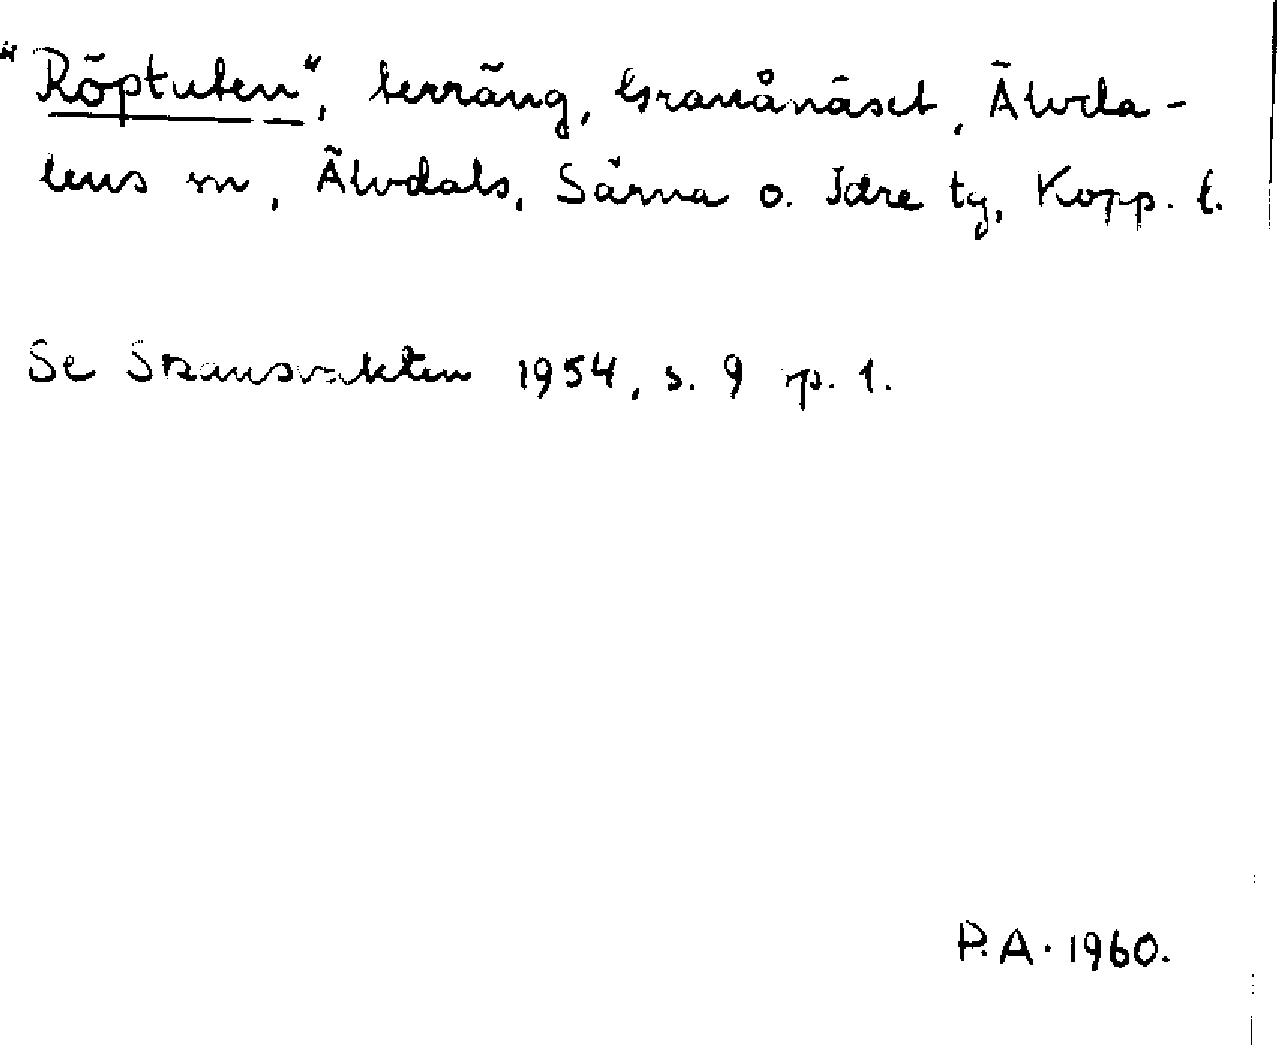 "Röptuten", terräng, Granånäset, Älvda-
lens sn, Älvdals, Särna o. Idre tg, Kopp. l.
Se Skansvakten 1954, s. 9 sp. 1.
P.A. 1960.